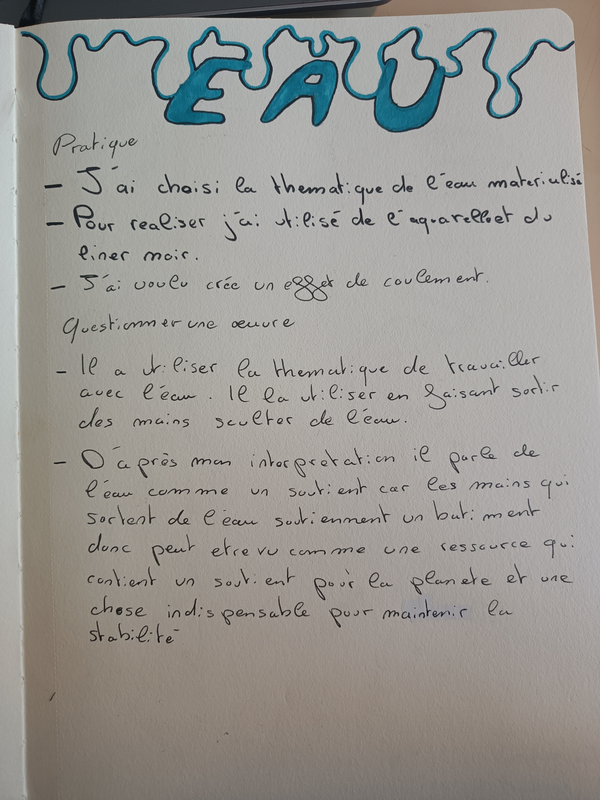 EAU
Pratique
- J'ai choisi la thematique de l'eau materialisé
- Pour realiser j'ai utilisé de l'aquarelle et du
liner noir.
- J'ai voulu crée un effet de coulement.
Questionner une œuvre
- Il a utiliser la thematique de travailler
avec l'eau. Il la utiliser en faisant sortir
des mains sculter de l'eau.
- D'après mon interpretation il parle de
l'eau comme un soutient car les mains qui
sortent de l'eau soutiennent un batiment
donc peut etre vu comme une ressource qui
contient un soutient pour la planete et une
chose indispensable pour maintenir la
stabilité